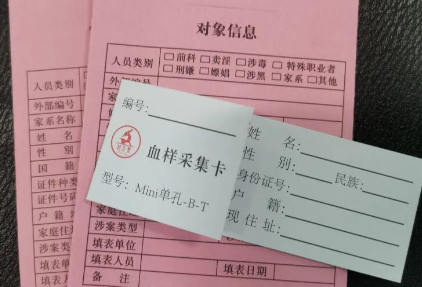 对象信息
人员类别 □前科 □卖淫 □涉毒 □特殊职业者
□刑嫌 □嫖娼 □涉黑 □家系 □其他
外部编号
涉案类型
填表单位
填表人员 填表日期
备 注
人员类别
外部编号
家系名称
姓 名
性 别
国 籍
证件种类
证件号码
户 籍
家庭住
涉案类型
填表单位
填表人
备 注
编号:
血样采集卡
型号: Mini单孔-B-T
姓 名:
性 别: 民族:
身份证号:
户 籍:
现 住 址: